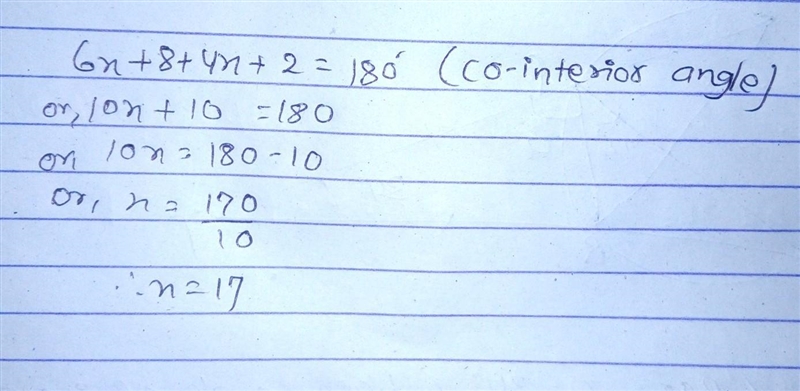 6x+8+4x+2=180° (co-interior angle)
or, 10x+10 =180
or 10x=180-10
or, x=170/10
∴x=17